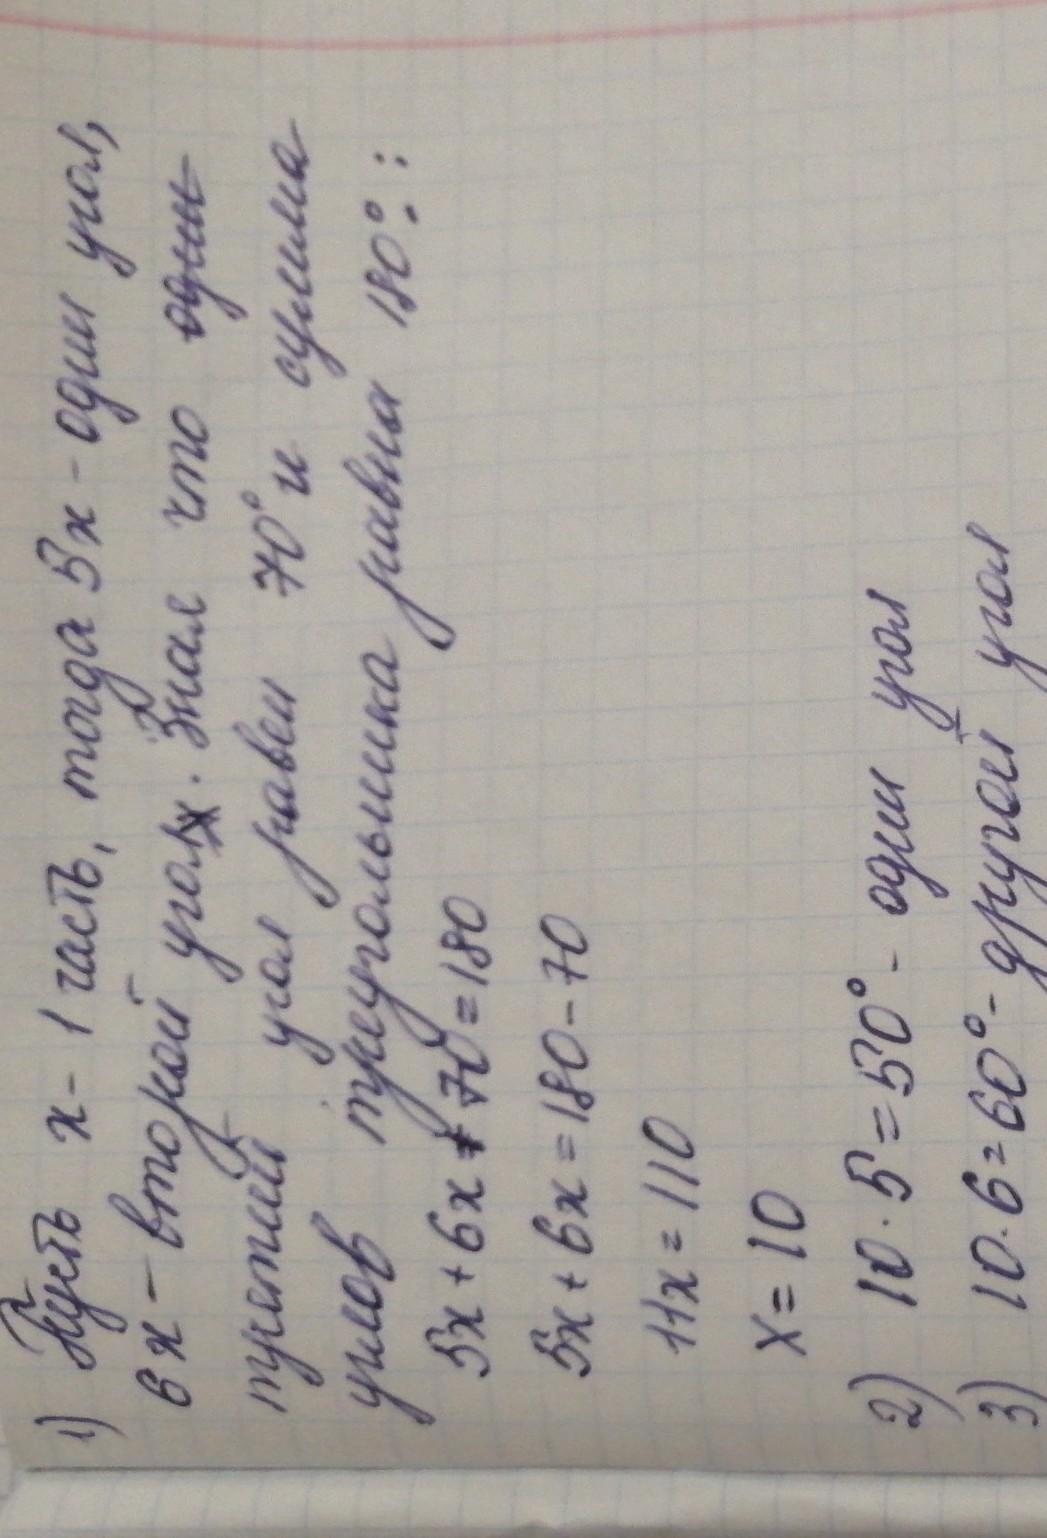 1) Пусть x - 1 часть, тогда 5x - один угол,
6x - второй угол. Зная что один
третий угол равен 70° и сумма
углов треугольника равна 180°:
5x + 6x + 70 = 180
5x + 6x = 180 - 70
11x = 110
x = 10
2) 10 · 5 = 50° - один угол
3) 10 · 6 = 60° - другой угол